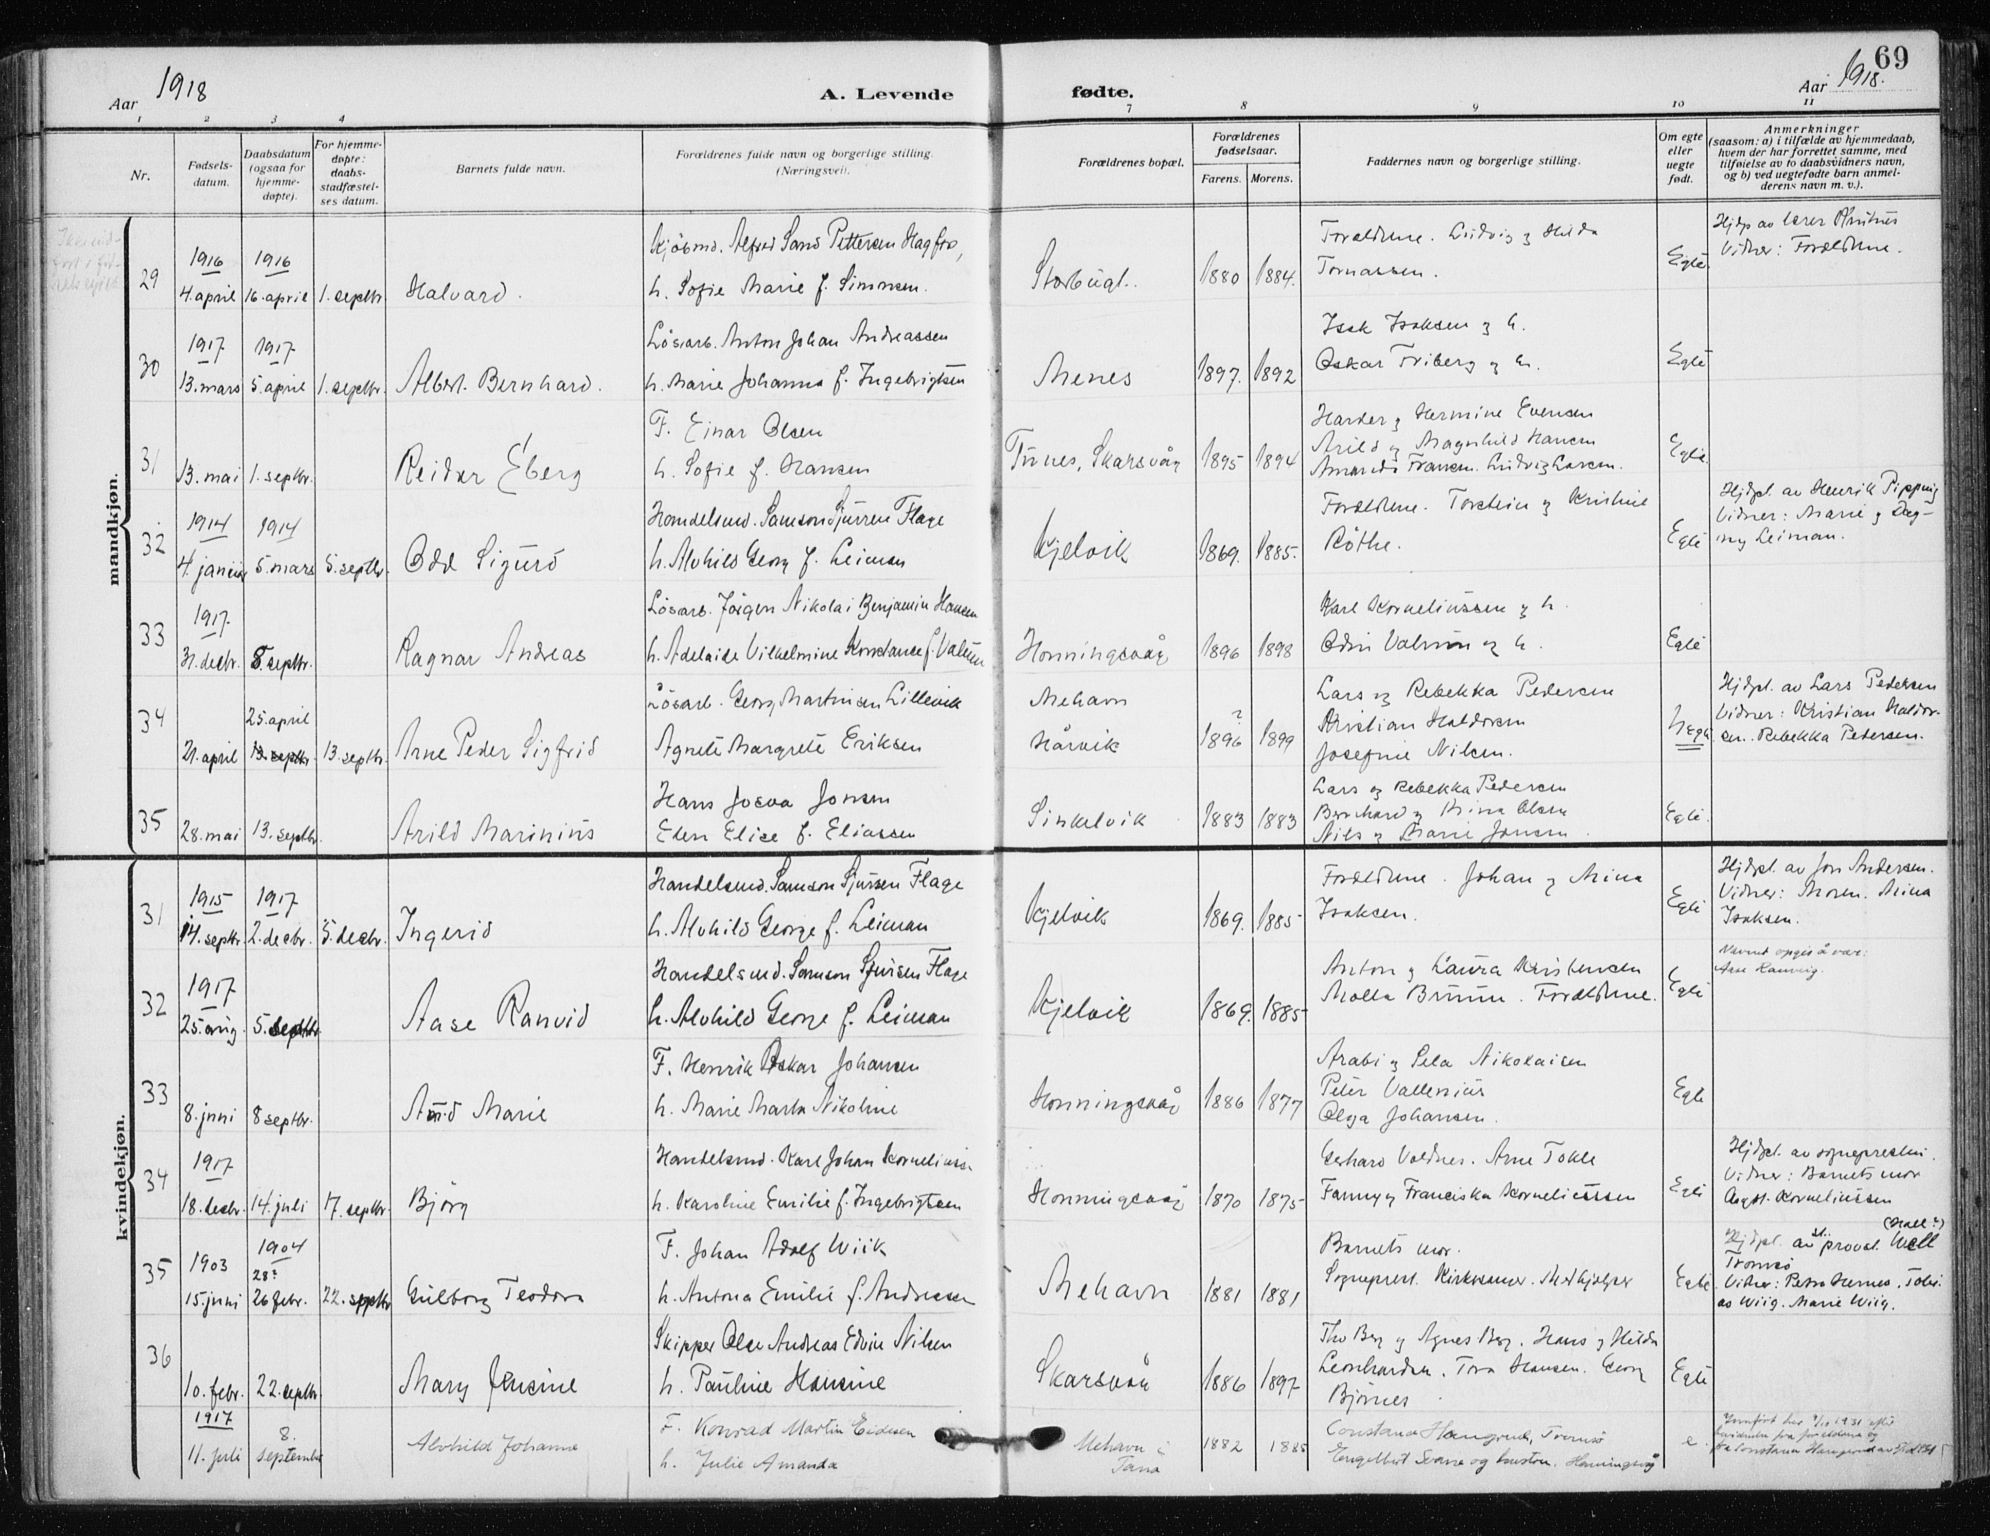 69
Aar 1918
A. Levende fødte.
Aar 1918.
1 2 3 4 7 8 9 10 11
Nr.
Fødsels-
datum.
Daabsdatum
(ogsaa for
hjemme-
døpte).
For hjemme-
døpte:
daabs-
stadfæstel-
ses datum.
Barnets fulde navn.
Forældrenes fulde navn og borgerlige stilling.
(Næringsvei).
Forældrenes bopæl.
Forældrenes
fødselsaar.
Farens. Morens.
Faddernes navn og borgerlige stilling.
Om egte
eller
uegte
født.
Anmerkninger
(saasom: a) i tilfælde av hjemmedaab,
hvem der har forrettet samme, med
tilføielse av to daabsvidners navn,
og b) ved uegtefødte barn anmel-
derens navn m. v.).
mandkjøn.
29
1916 4. april
1916 16. april
1. septbr
Halvard.
Kjøbmd. Alfred Sand Pettersen Hagfos,
h. Sofie Marie f. Simonsen.
Storbugt.
1880 1884.
Forældrene. Ludvig og Hilda
Tomassen.
Egte
Hjdp av lærer
Vidner: Forældrene.
30
1917 13. mars
1917 5. april
1. septbr.
Albert Bernhard.
Løsarb. Anton Johan Andreassen
h. Marie Johanna f. Ingebrigtsen
Menes
1897. 1892
Isak Isaksen og h.
Oskar Friberg og h.
Egte
31
13. mai
1. septbr.
Reidar Eberg
F. Einar Olsen
h. Sofie f. Hansen
Tunes, Skarsvåg
1895 1894
Harder og Hermine Evensen
Arild og Magnhild Hansen
Amanda Fransen. Ludvig Larsen.
Egte
32
1914 4. januar
1914 5. mars
5. septbr.
Odd Sigurd
Handelsmd. Samson Sjursen Flage
h. Alvhild Georg f. Leiman
Kjelvik
1869. 1885.
Forældrene. Torstein og Kristine
Røthe.
Egte
Hjdpt. av Henrik Pipping
Vidner: Marie og Dag-
ny Leiman.
33
1917. 31. decbr.
8. septbr.
Ragnar Andreas
Løsarb. Jørgen Nikolai Benjamin Hansen
h. Adelaide Vilhelmine Konstance f. Valmu
Honningsvaag
1896 1898
Karl Korneliussen og h.
Odin Valmu og h.
Egte
34
21. april
25. april
13. septbr.
13. septbr.
Arne Peder Sigfrid
Løsarb. Georg Martinsen Lillevik
Agnete Margrete Eriksen
Mehavn
Hårvik
? 1896 1899
Lars og Rebekka Pedersen
Kristian Haldorsen
Josefine Nilsen.
Uegte
Hjdpt. av Lars Pedersen
Vidner: Kristian Haldor-
sen. Rebekka Petersen.
35
28. mai
13. septbr.
Arild Marinius
Hans Josva Jonsen
Eden Elise f. Eliassen
Sinkelvik
1883 1883
Lars og Rebekka Pedersen
Bernhard og Nina Olsen
Nils og Marie Jonsen.
Egte.
kvindekjøn.
31
1915 14. septbr.
1917 2. decbr.
5. decbr.
Ingerid
Handelsmd. Samson Sjursen Flage
h. Alvhild George f. Leiman
Kjelvik
1869. 1885
Forældrene. Johan og Mina
Isaksen.
Egte
Hjdpt. av Jon Andersen.
Vidner: Moren. Mina
Isaksen.
32
1917 25. aug.
5. septbr
Aase Ranvid
Handelsmd. Samson Sjursen Flage
h. Alvhild George f. Leiman
Kjelvik
1869. 1885
Anton og Laura Kristensen
Malla Bruun. Forældrene.
Egte
Navnet opgis å være:
Aase Rannvig.
33
8. juni
8 septbr.
Arnd Marie
F. Henrik Oskar Johansen
h. Marie Marta Nikoline
Honningsvåg
1886 1877
Arabi og Sela Nikolaisen
Peter Vallenius
Olga Johansen.
Egte
34
1917 18. decbr.
14. juli
17. septbr.
Bjørg
Handelsmd. Karl Johan Korneliussen
h. Karoline Emilie f. Ingebrigtsen
Honningsvåg
1870 1875
Gerhard Voldnes. Arne Tokle
Fanny og Franciska Korneliussen
Egte
Hjdpt. av sogneprestm.
Vidner: Barnets mor
Aagot. Korneliussen
35
1903 15. juni
1904 28? 26 febr.
22. septbr
Gulborg Teodora
F. Johan Adolf Wiik
h. Antona Emilie f. Andreassen
Mehavn
1881 1881
Barnets mor.
Sogneprest. Kirkesanger. Medhjelper
Egte
(Hall?)
Hjdpt. av st. provst Well
Tromsø
Vidner: Petra Hernes. Tobi-
as Wiig. Marie Wiig.
36
10. febr.
22. septbr
Mary Jensine
Skipper Olse Andreas Edvin Nilsen
h. Pauline Hansine
Skarsvåg
1886 1897
Tho Berg og Agnes Berg. Hans og Hilda
Leonhardsen. Tora Hansen. Georg
Bjørnes
Egte
1917 11. juli
8. september
Alvhild Johanne
F. Konrad Martin Eidesen
h. Julie Amanda
Mehavn i
Tana
1882 1885
Constance Haugrud, Tromsø
Engelbert Svane og hustru. Honningsvåg
e.